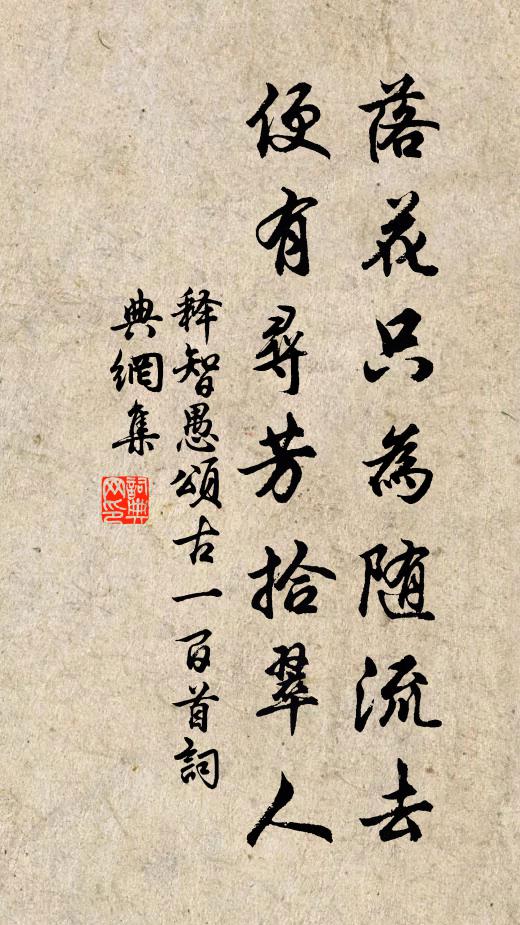 落花只為随流去
便有尋芳拾翠人
释智愚頌古一百首詞
典網集
詞典网印